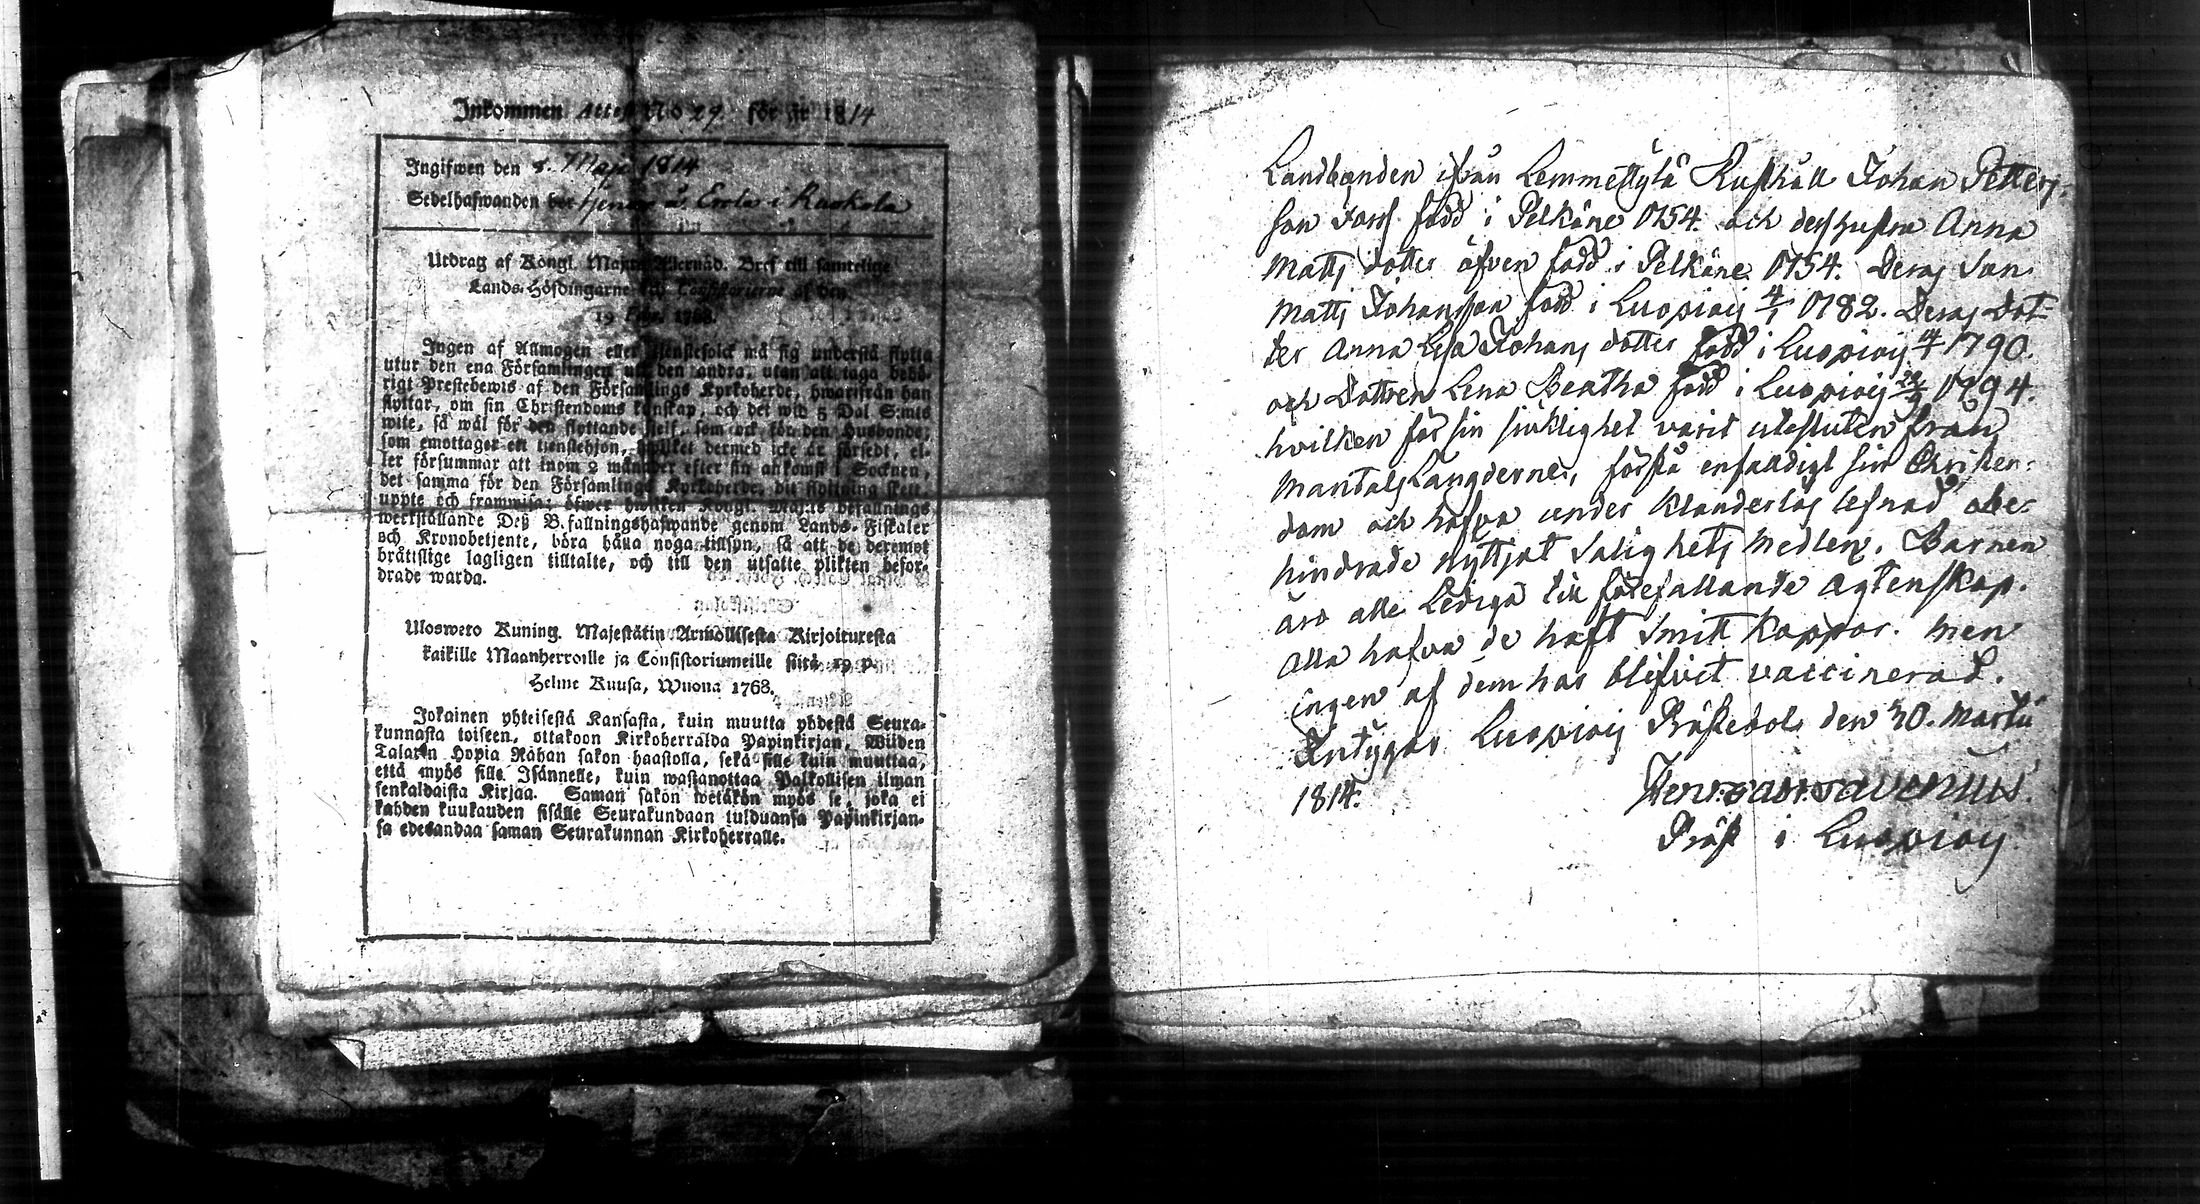 Inkommen Attest No 29 för år 1814
Ingifwen den 8. Maji 1814
Sedelhafwanden bor tjenar å Erola i Ruokola
Utdrag af Kongl. Maj:ts Allernåd. Bref till samtelige
Lands-Höfdingarne och Consistorierne af den
19 Febr. 1768.
Ingen af Allmogen eller tjenstefolck må sig understå flytta
utur den ena Församlingen uti den andra, utan att taga behö-
rigt Prestebewis af den Församlings Kyrkoherde, hwarifrån han
flyttar, om sin Christendoms kunskap, och det wid 5 Dal. S:mts
wite, så wäl för den flyttande sielf, som ock för den Husbonde,
som emottager ett tienstehjon, hwilket dermed icke är försedt, el-
ler försummar att inom 2 månader efter sin ankomst i Socknen,
det samma för den Församlings Kyrkoherde, dit flyttning skett
uppte och framwisa; öfwer hwilken Kongl. Maj:ts befallnings
werkställande Deß B.fallningshafwande genom Lands-Fiskaler
och Kronobetjente, böra hålla noga tillsyn, så att de deremot
bråttslige lagligen tilltalte, och till den utsatte plikten befor-
drade warda.
Uloswero Kuning. Majestätin Armollisesta Kirjoituxesta
kaikille Maanherroille ja Consistoriumeille siitä 19 p.
Helme Kuusa, Wuona 1768.
Jokainen yhteisestä Kansasta, kuin muutta yhdestä Seura-
kunnasta toiseen, ottakoon Kirkoherralda Papinkirjan, Wijden
Talarin Hopia Rahan sakon haastolla, sekä sille kuin muuttaa,
että myös sille Isännelle, kuin wastanottaa Palkollisen ilman
senkaldaista Kirjaa. Saman sakon wetäkön myös se, joka ei
kahden kuukauden sisälle Seurakundaan tulduansa Papinkirjan-
sa edesandaa saman Seurakunnan Kirkoherralle.
Landbonden ifrån Lemmettylä Rusthåll Johan Petters-
son Joss född i Pelkäne 1754. och dess hustru Anna
Matts dotter äfven född i Pelkäne 1754. Deras Son
Matts Johansson född i Luopiois 4/1 1782. Deras Dot-
ter Anna Lisa Johans dotter född i Luopiois 4/4 1790.
och Dottren Lena Beatha född i Luopiois 1794.
hvilken för sin siuklighet varit utesluten från
Mantals Längderne, förstå enfalldigt sin Christen-
dom och hafva under klanderlös lefnad obe-
hindrade nyttjat Salighets medlen. Barnen
äro alle Lediga till förefallande ägtenskap.
Alla hafva de haft Smitt Koppor. Men
ingen af dem har blifvit vaccinerad.
Intygar Luopiois Prästebol den 30. Martii
1814.
Präst i Luopiois